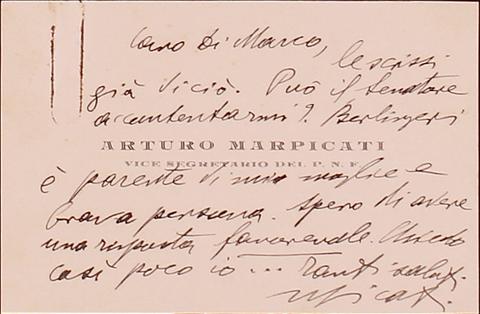 Caro Di Marco,
le scrissi
già di ciò. Può il Senatore
accontentarmi? Berlingeri
ARTURO MARPICATI
VICE SEGRETARIO DEL P. N. F.
è parente di mia moglie e
brava persona. Spero di avere
una risposta favorevole. Chiedo
così poco io ... Tanti saluti.